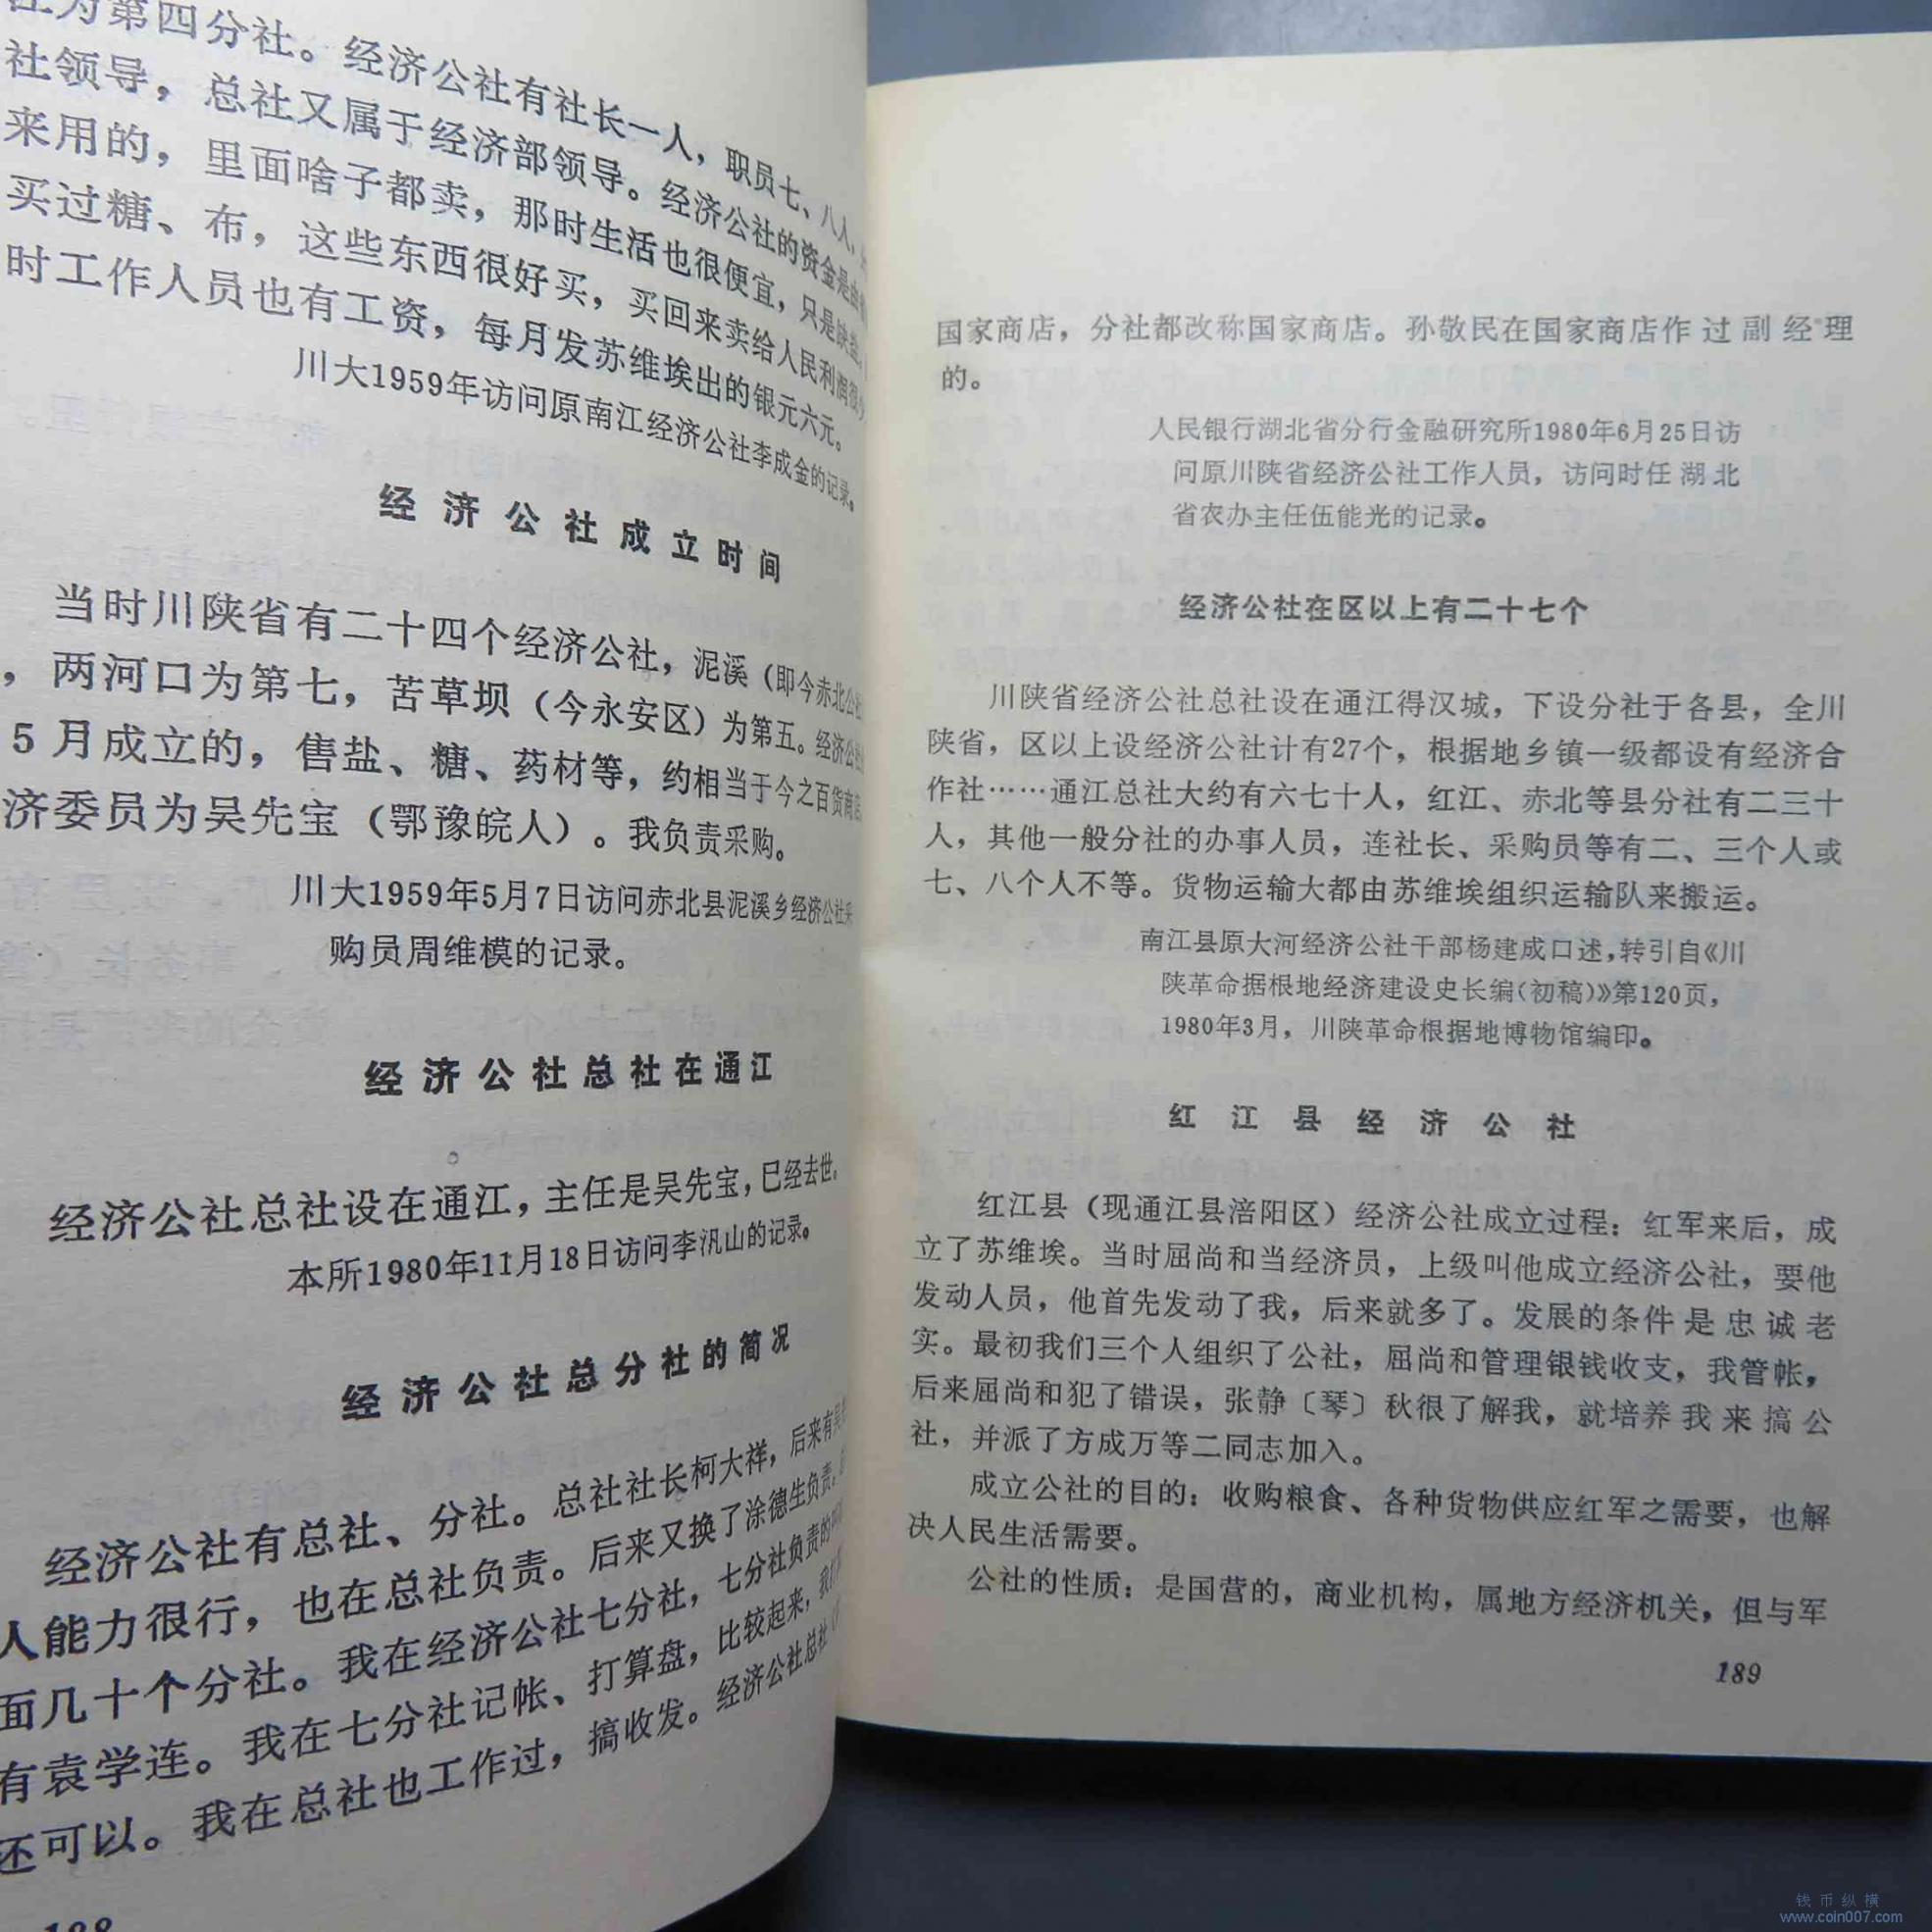 为第四分社。经济公社有社长一人，职员七、八人，
社领导，总社又属于经济部领导。经济公社的资金是由
来用的，里面啥子都卖，那时生活也很便宜，只是缺盐，
买过糖、布，这些东西很好买，买回来卖给人民利润很少
时工作人员也有工资，每月发苏维埃出的银元六元。
川大1959年访问原南江经济公社李成金的记录。
经济公社成立时间
当时川陕省有二十四个经济公社，泥溪（即今赤北公社
，两河口为第七，苦草坝（今永安区）为第五。经济公社
5月成立的，售盐、糖、药材等，约相当于今之百货商店
济委员为吴先宝（鄂豫皖人）。我负责采购。
川大1959年5月7日访问赤北县泥溪乡经济公社采
购员周维模的记录。
经济公社总社在通江
经济公社总社设在通江，主任是吴先宝，已经去世。
本所1980年11月18日访问李汎山的记录。
经济公社总分社的简况
经济公社有总社、分社。总社社长柯大祥，后来有吴
人能力很行，也在总社负责。后来又换了涂德生负责。
面几十个分社。我在经济公社七分社，七分社负责的
有袁学连。我在七分社记帐、打算盘，比较起来，我
还可以。我在总社也工作过，搞收发。经济公社总社
188
国家商店，分社都改称国家商店。孙敬民在国家商店作过副经理
的。
人民银行湖北省分行金融研究所1980年6月25日访
问原川陕省经济公社工作人员，访问时任湖北
省农办主任伍能光的记录。
经济公社在区以上有二十七个
川陕省经济公社总社设在通江得汉城，下设分社于各县，全川
陕省，区以上设经济公社计有27个，根据地乡镇一级都设有经济合
作社……通江总社大约有六七十人，红江、赤北等县分社有二三十
人，其他一般分社的办事人员，连社长、采购员等有二、三个人或
七、八个人不等。货物运输大都由苏维埃组织运输队来搬运。
南江县原大河经济公社干部杨建成口述，转引自《川
陕革命据根地经济建设史长编（初稿）》第120页，
1980年3月，川陕革命根据地博物馆编印。
红江县经济公社
红江县（现通江县涪阳区）经济公社成立过程：红军来后，成
立了苏维埃。当时屈尚和当经济员，上级叫他成立经济公社，要他
发动人员，他首先发动了我，后来就多了。发展的条件是忠诚老
实。最初我们三个人组织了公社，屈尚和管理银钱收支，我管帐，
后来屈尚和犯了错误，张静〔琴〕秋很了解我，就培养我来搞公
社，并派了方成万等二同志加入。
成立公社的目的：收购粮食、各种货物供应红军之需要，也解
决人民生活需要。
公社的性质：是国营的，商业机构，属地方经济机关，但与军
189
钱币纵横
www.coin007.com